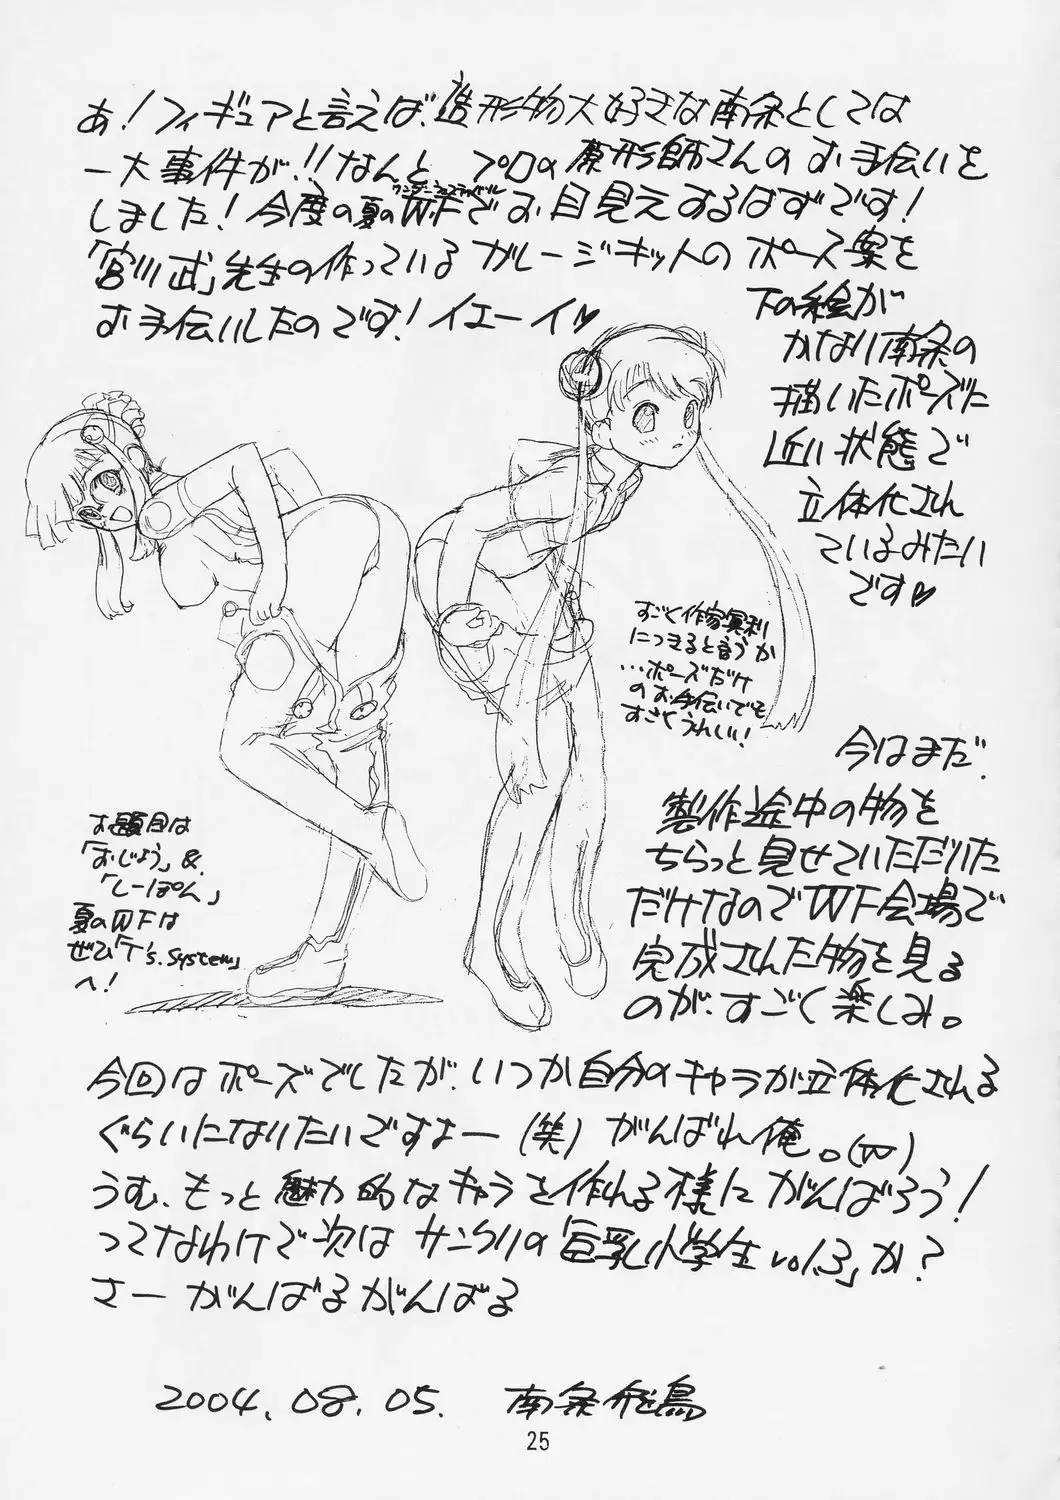 あ!フィギュアと言えば、造形物大好きな南条としては
一大事件が!!なんと プロの原形師さんのお手伝いを
しました!今度の夏のWFでお目見えするはずです!
ワンダーフェスティバル
「宮川武」先生の作っているガレージキットのポーズ案を
お手伝いしたのです!イエーイ♡
下の絵が
かなり南条の
描いたポーズに
近い状態で
立体化され
ているみたい
です♡
すごく作家冥利
につきると言うか
…ポーズだけ
のお手伝いでも
すごくうれしい!
今はまだ、
製作途中の物を
ちらっと見せていただいた
だけなのでWF会場で
完成された物を見る
のが、すごく楽しみ。
お題目は
「おじょう」&
「しーぽん」
夏のWFは
ぜひ「T's.System」
へ!
今回はポーズでしたが、いつか自分のキャラが立体化される
ぐらいになりたいですよー(笑)がんばれ俺。
うむ、もっと魅力的なキャラを作れる様にがんばろう!
ってなわけで次はサンクリの「巨乳小学生vol.3」か?
さーがんばるがんばる
2004.08.05. 南条飛鳥
25